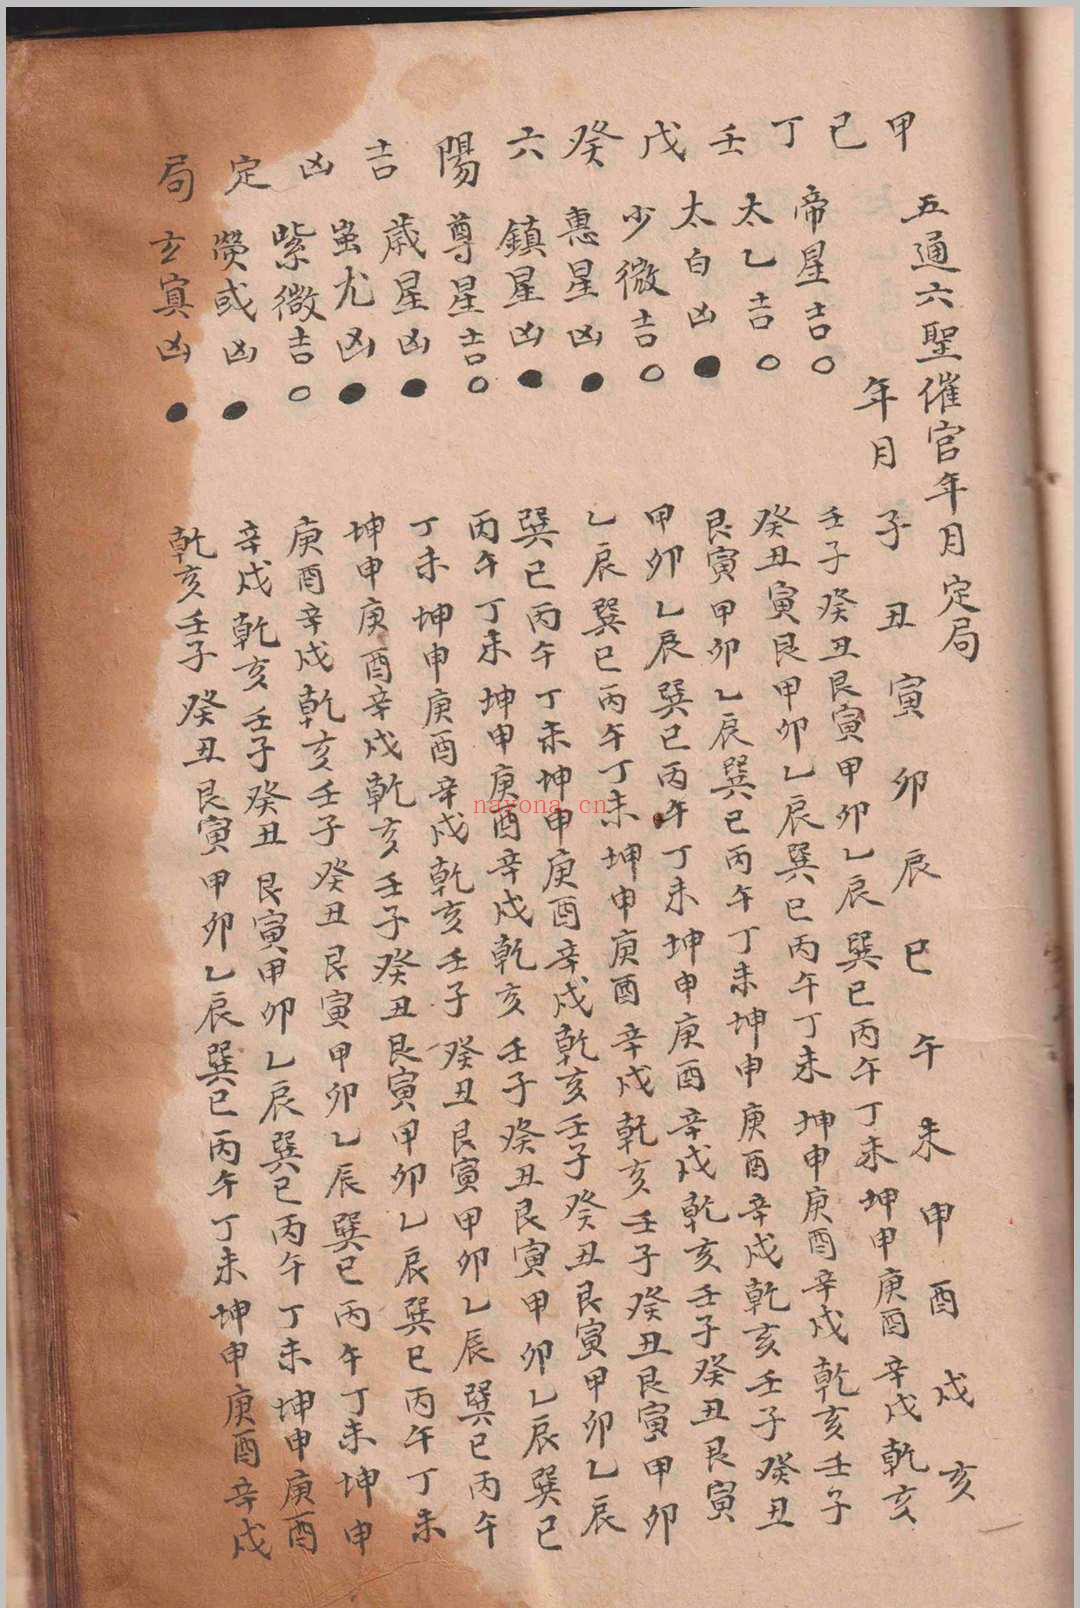 五通六聖催官年月定局
甲己丁壬戊癸六陽吉凶定局
年月子丑寅卯辰巳午未申酉戌亥
帝星吉○壬子癸丑艮寅甲卯乙辰巽巳丙午丁未坤申庚酉辛戌乾亥
太乙吉○癸丑寅艮甲卯乙辰巽巳丙午丁未坤申庚酉辛戌乾亥壬子
太白凶●艮寅甲卯乙辰巽巳丙午丁未坤申庚酉辛戌乾亥壬子癸丑
少微吉○甲卯乙辰巽巳丙午丁未坤申庚酉辛戌乾亥壬子癸丑艮寅
惠星凶●乙辰巽巳丙午丁未坤申庚酉辛戌乾亥壬子癸丑艮寅甲卯
鎮星凶●巽巳丙午丁未坤申庚酉辛戌乾亥壬子癸丑艮寅甲卯乙辰
尊星吉○丙午丁未坤申庚酉辛戌乾亥壬子癸丑艮寅甲卯乙辰巽巳
歲星凶●丁未坤申庚酉辛戌乾亥壬子癸丑艮寅甲卯乙辰巽巳丙午
蚩尤凶●坤申庚酉辛戌乾亥壬子癸丑艮寅甲卯乙辰巽巳丙午丁未
紫微吉○庚酉辛戌乾亥壬子癸丑艮寅甲卯乙辰巽巳丙午丁未坤申
熒或凶●辛戌乾亥壬子癸丑艮寅甲卯乙辰巽巳丙午丁未坤申庚酉
玄冥凶●乾亥壬子癸丑艮寅甲卯乙辰巽巳丙午丁未坤申庚酉辛戌
nayona.cn